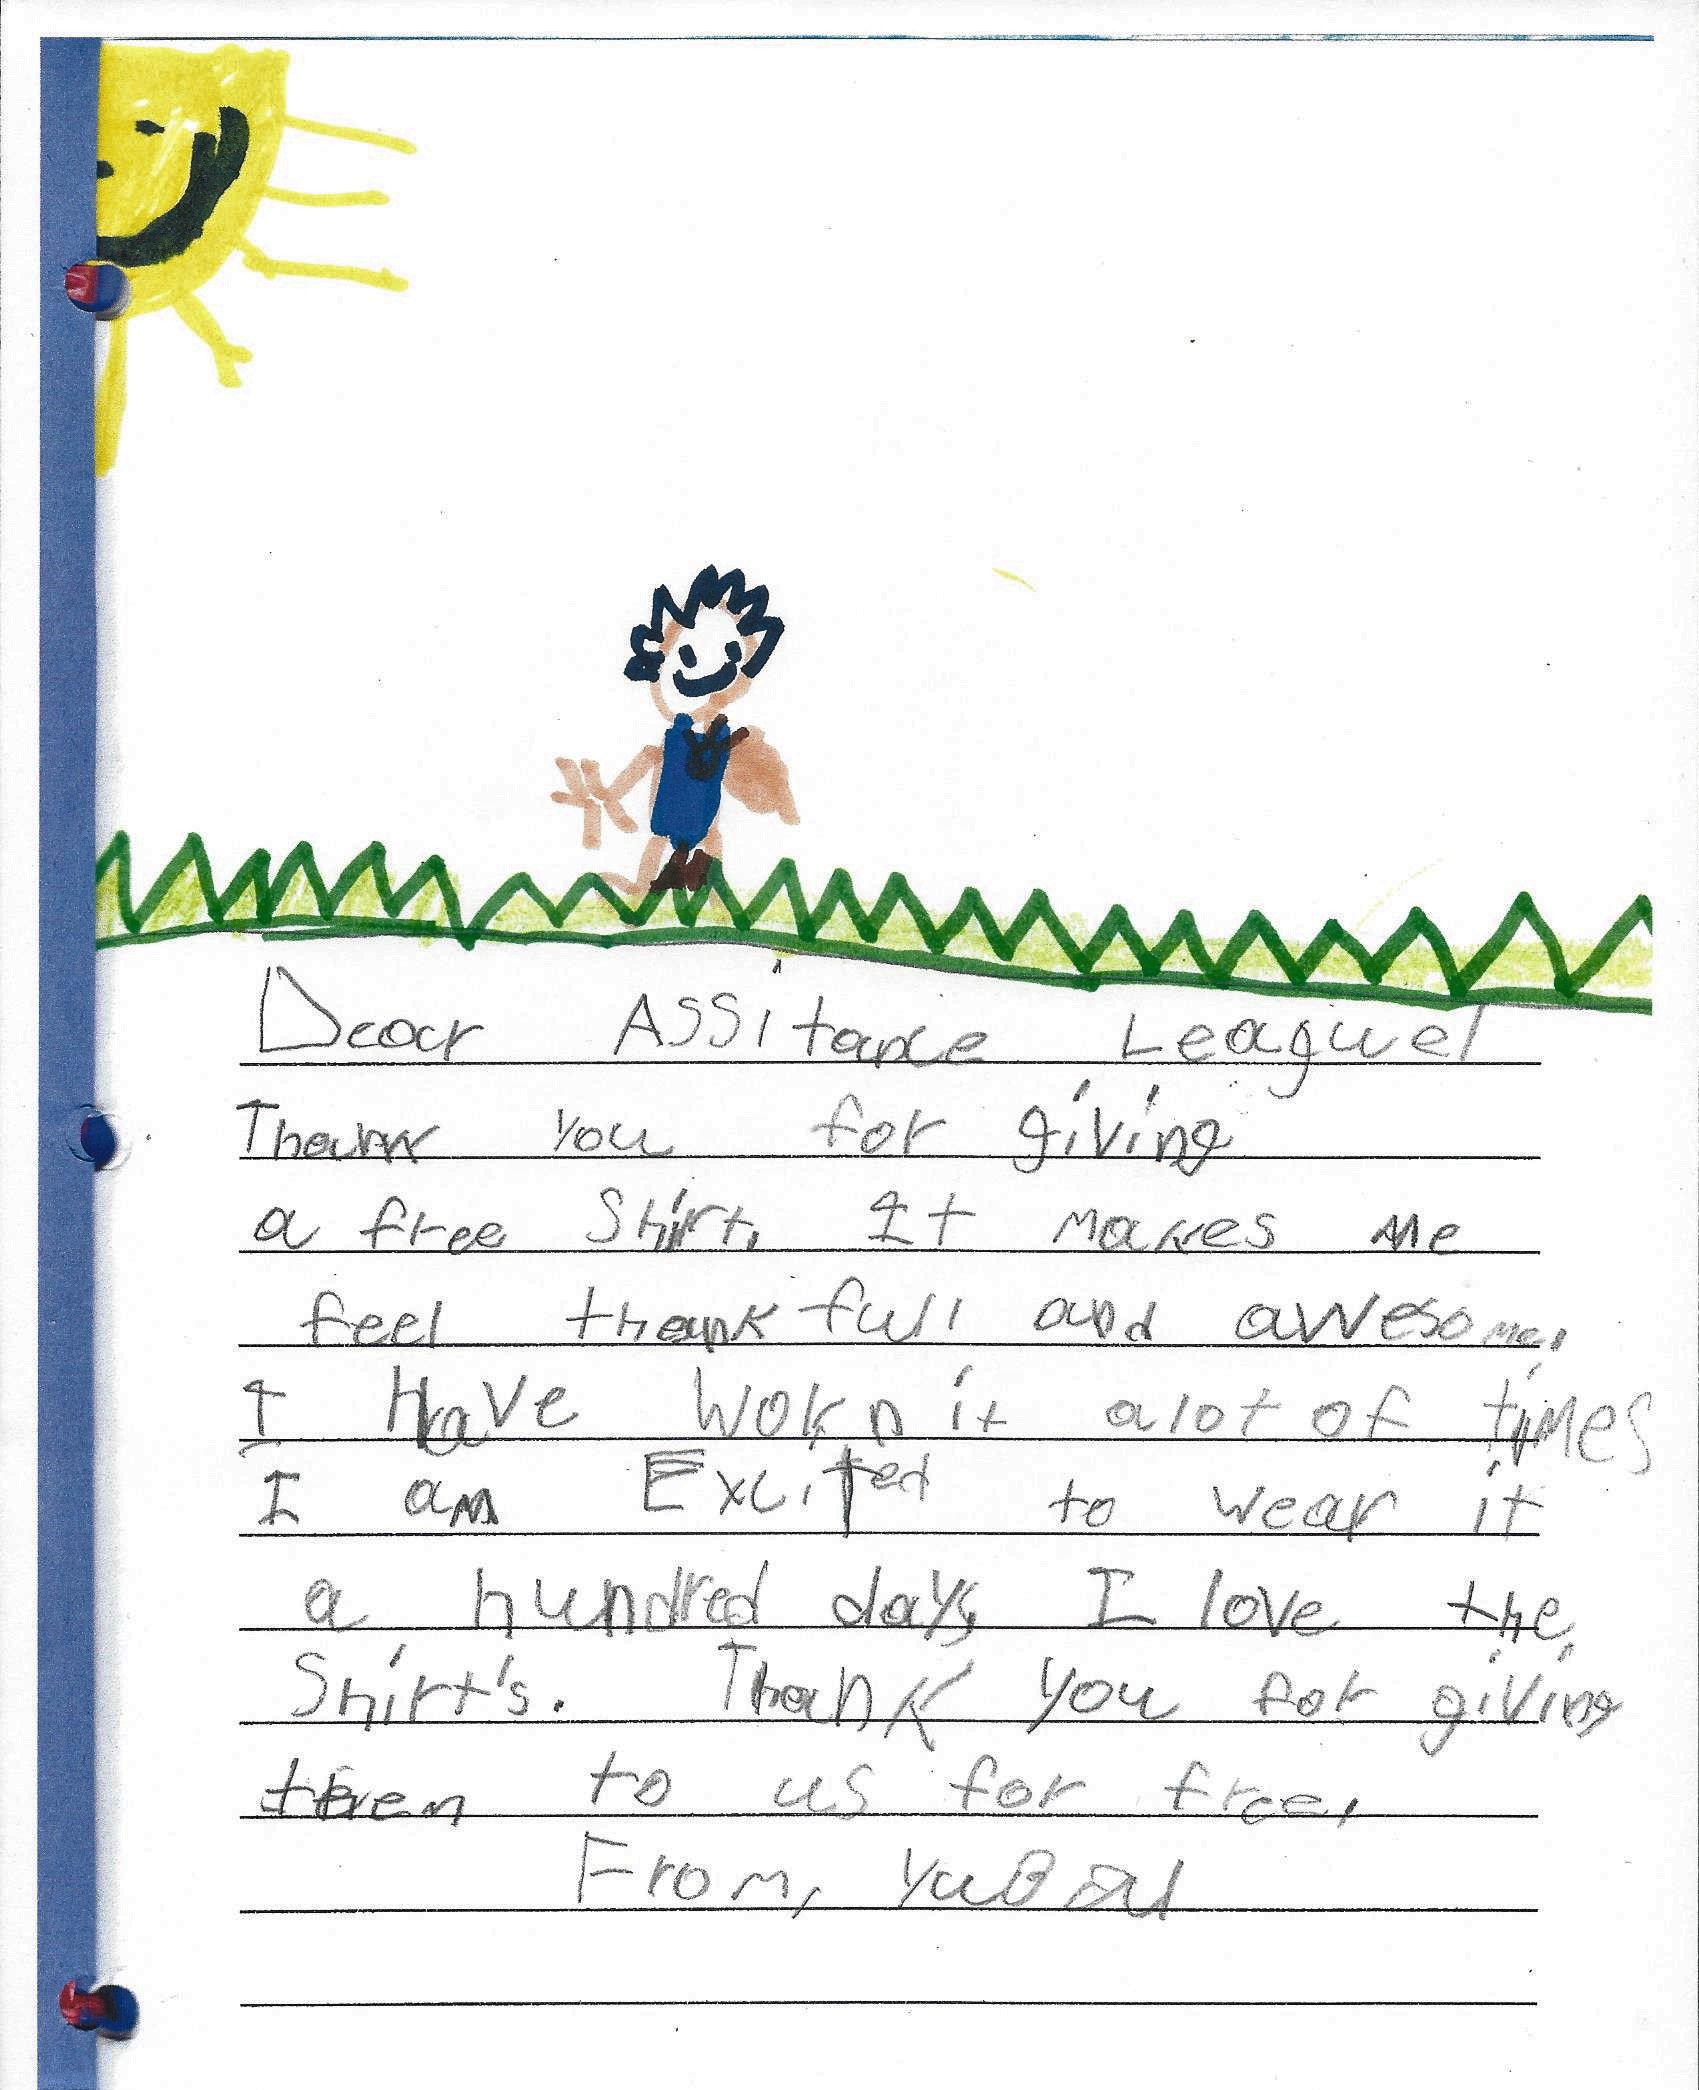 Dear Assitance League!
Thank you for giving
a free Shirt. It makes me
feel thankfull and awesome.
I Have Worn it alot of times
I am Excited to wear it
a hundred days, I love the
Shirt's. Thank you for giving
them to us for free.
From,